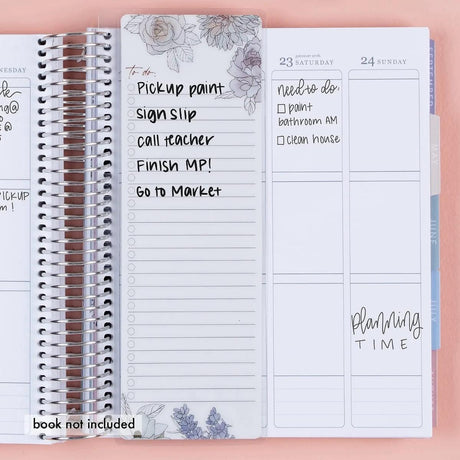 to do.
Pickup paint
Sign Slip
Call teacher
Finish MP!
Go to Market
23 SATURDAY
need to do:
paint
bathroom AM
clean house
24 SUNDAY
planning
TIME
EDNESDAY
PICKUP
MAY
JUNE
JULY
book not included